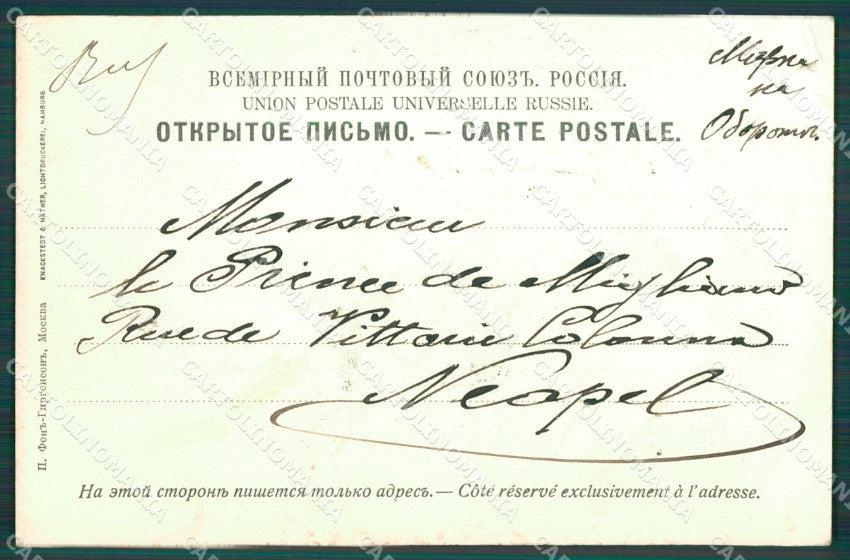 ВСЕМІРНЫЙ ПОЧТОВЫЙ СОЮЗЪ. РОССІЯ.
UNION POSTALE UNIVERSELLE RUSSIE.
ОТКРЫТОЕ ПИСЬМО. — CARTE POSTALE.
Марка
на
Оборотѣ.
Monsieur
le Prince de Migliano
Rue de Vittorio Colonna
Neapel
На этой сторонѣ пишется только адресъ. — Côté réservé exclusivement à l'adresse.
П. Фонъ-Гиргенсонъ, Москва
KNACKSTEDT & NÄTHER, LICHTDRUCKEREI, HAMBURG.
CARTOLINOMANIA